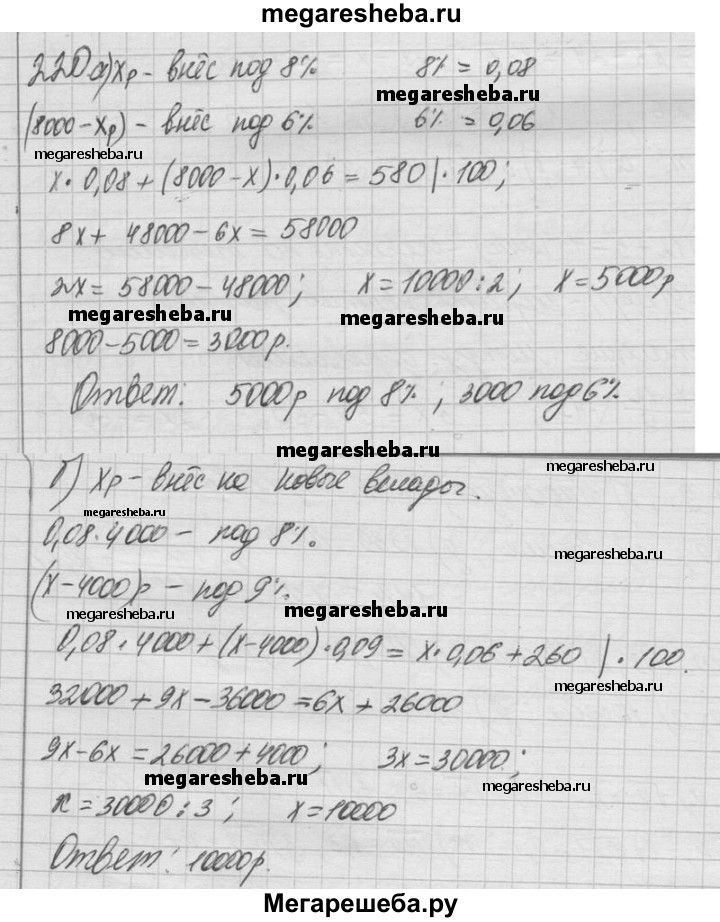 megaresheba.ru
220 а) Xр – внёс под 8%     8% = 0,08
megaresheba.ru
(8000 – Xр) – внёс под 6%     6% = 0,06
megaresheba.ru
X · 0,08 + (8000 – X) · 0,06 = 580 | · 100;
8X + 48000 – 6X = 58000
2X = 58000 – 48000;     X = 10000 : 2;     X = 5000р
megaresheba.ru     megaresheba.ru
8000 – 5000 = 3000р.
Ответ: 5000р под 8%; 3000 под 6%
megaresheba.ru
б) Xр – внёс на новые вклады.
megaresheba.ru
megaresheba.ru
0,08 · 4000 – под 8%.
megaresheba.ru
(X – 4000)р – под 9%.
megaresheba.ru     megaresheba.ru
0,08 · 4000 + (X – 4000) · 0,09 = X · 0,06 + 260 | · 100.
megaresheba.ru
32000 + 9X – 36000 = 6X + 26000
9X – 6X = 26000 + 4000;     3X = 30000;
megaresheba.ru     megaresheba.ru
X = 30000 : 3;     X = 10000
Ответ: 10000р.
Мегарешеба.ру